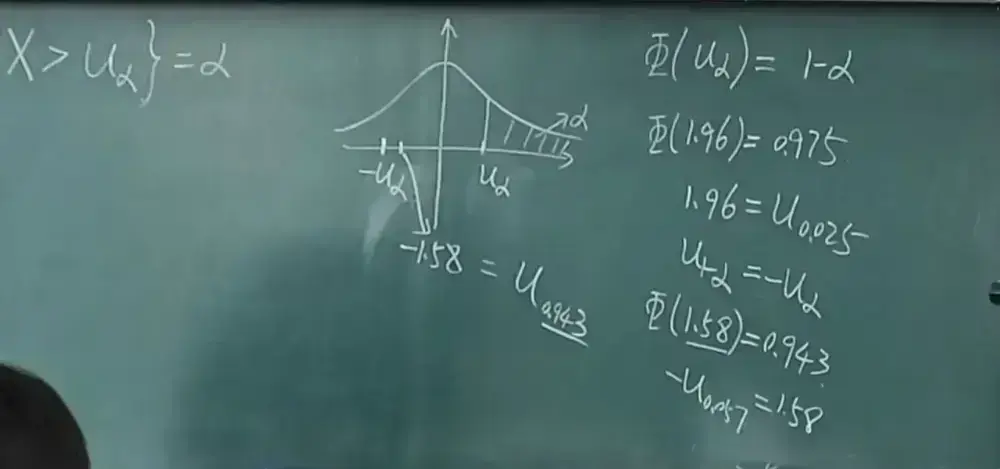 X > u_α} = α
α
-u_α
u_α
-1.58 = u_0.943
Φ(u_α) = 1-α
Φ(1.96) = 0.975
1.96 = u_0.025
u_1-α = -u_α
Φ(1.58) = 0.943
-u_0.057 = 1.58